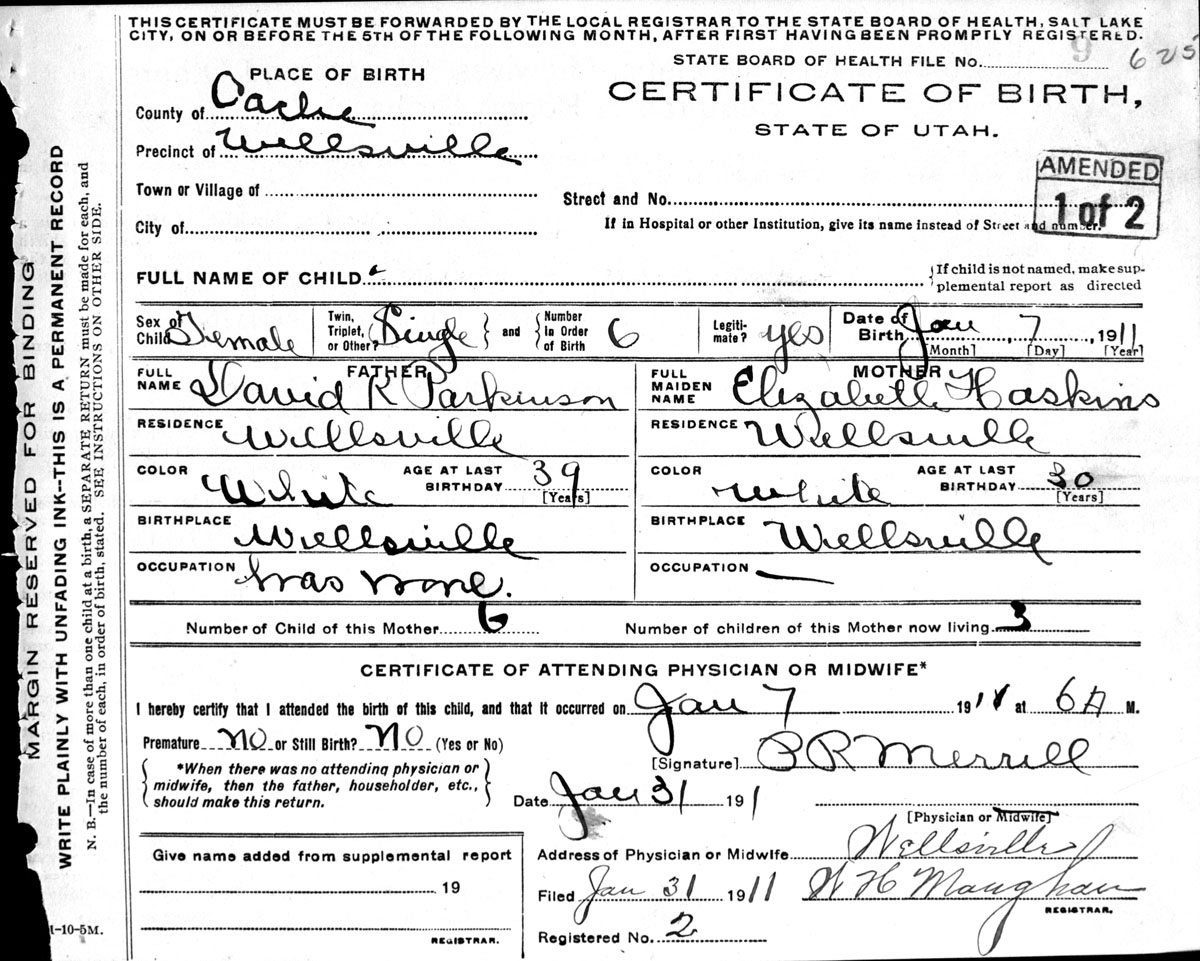 THIS CERTIFICATE MUST BE FORWARDED BY THE LOCAL REGISTRAR TO THE STATE BOARD OF HEALTH, SALT LAKE
CITY, ON OR BEFORE THE 5TH OF THE FOLLOWING MONTH, AFTER FIRST HAVING BEEN PROMPTLY REGISTERED.
STATE BOARD OF HEALTH FILE NO. 9 625
PLACE OF BIRTH
CERTIFICATE OF BIRTH,
STATE OF UTAH.
County of Cache
Precinct of Wellsville
Town or Village of
Street and No.
City of
If in Hospital or other Institution, give its name instead of Street and number.
AMENDED
1 of 2
FULL NAME OF CHILD
If child is not named, make sup-
plemental report as directed
Sex of Child Female
Twin, Triplet, or Other? Single and Number In Order of Birth 6
Legiti-mate? yes
Date of Birth Jan 7, 1911
[Month] [Day] [Year]
FATHER
FULL NAME David R Parkinson
RESIDENCE Wellsville
COLOR White AGE AT LAST BIRTHDAY 39 [Years]
BIRTHPLACE Wellsville
OCCUPATION
MOTHER
FULL MAIDEN NAME Elizabeth Haskins
RESIDENCE Wellsville
COLOR White AGE AT LAST BIRTHDAY 30 [Years]
BIRTHPLACE Wellsville
OCCUPATION —
Number of Child of this Mother 6
Number of children of this Mother now living 3
CERTIFICATE OF ATTENDING PHYSICIAN OR MIDWIFE*
I hereby certify that I attended the birth of this child, and that it occurred on Jan 7 1911 at 6 A M.
Premature No or Still Birth? No (Yes or No)
*When there was no attending physician or
midwife, then the father, householder, etc.,
should make this return.
[Signature] P R Merrill
Date Jan 31 191
[Physician or Midwife]
Give name added from supplemental report
19
REGISTRAR.
Address of Physician or Midwife Wellsville
Filed Jan 31 1911 W H Maughan
REGISTRAR.
Registered No. 2
1-10-5M.
MARGIN RESERVED FOR BINDING
WRITE PLAINLY WITH UNFADING INK--THIS IS A PERMANENT RECORD
N. B.—In case of more than one child at a birth, a SEPARATE RETURN must be made for each, and
the number of each, in order of birth, stated. SEE INSTRUCTIONS ON OTHER SIDE.